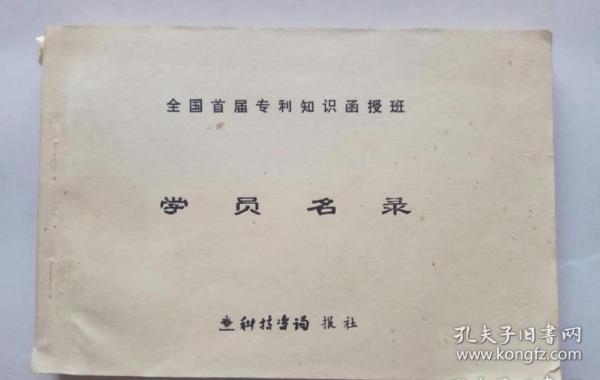 全国首届专利知识函授班
学员名录
科技咨询报社
孔夫子旧书网
www.kongfz.com